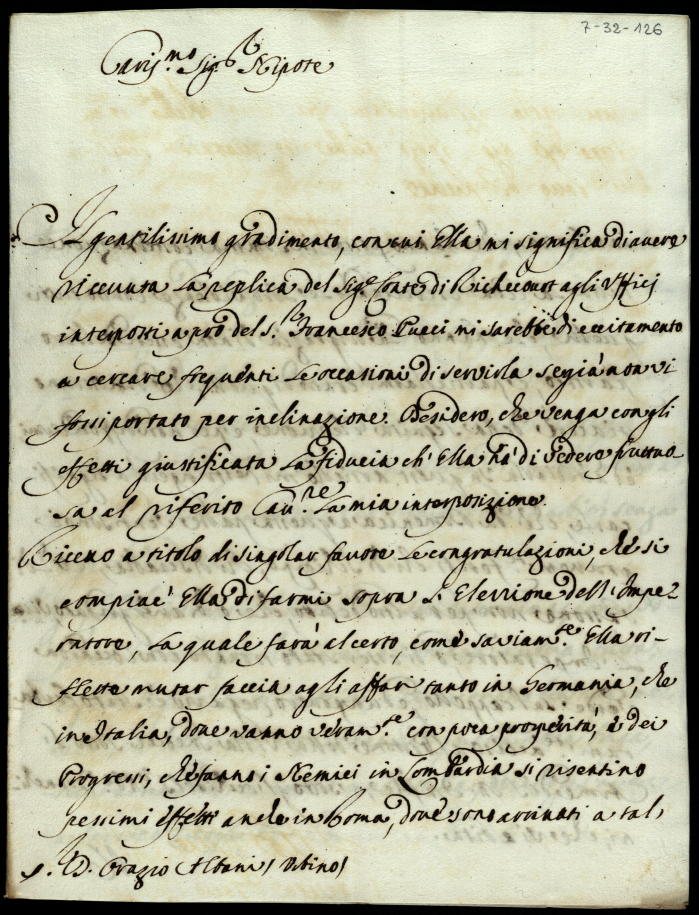 7-32-126
Cariss.mo Sig.r Nipote
Il gentilissimo gradimento, con cui Ella mi significa di avere
ricevuta la replica del Sig.r Conte di Richecourt agli Uffici
interposti a pro del S.r Francesco Pucci mi sarebbe di eccitamento
a cercare frequenti le occasioni di servirla se già non vi
fossi portato per inclinazione. Desidero, che venga con gli
effetti giustificata la fiducia ch' Ella hà di vedere fruttuo-
sa al riferito Cav.re la mia interposizione.
Ricevo a titolo di singolar favore le congratulazioni, che si
compiace Ella di farmi sopra l' Elezione dell' Impe-
ratore, la quale farà al certo, come saviam.te Ella ri-
flette mutar faccia agli affari tanto in Germania, che
in Italia, dove vanno veram.te con poca prosperità, e dei
Progressi, che fanno i Nemici in Lombardia si risentino
pessimi effetti anche in Roma, dove sono arrivati a tal
S.r D. Orazio Albani / Urbino /